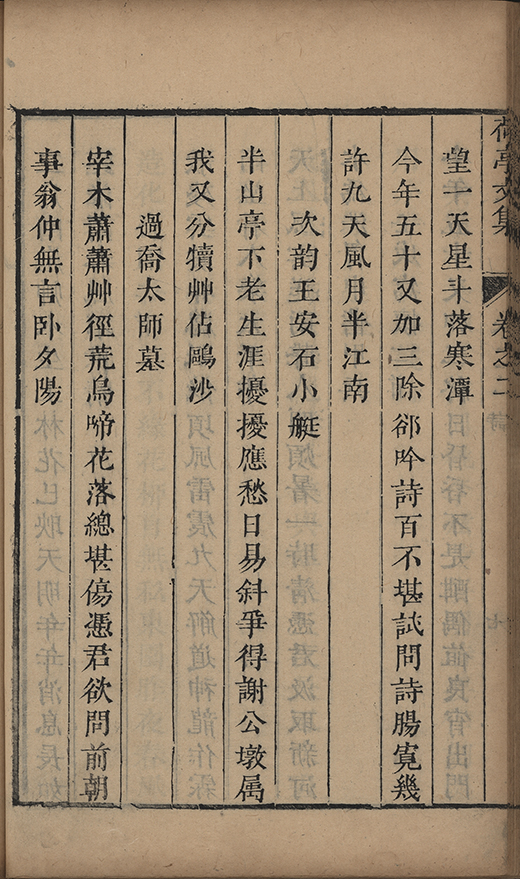 荷亭文集 卷之二 詩 七
望一天星斗落寒潭
今年五十又加三除郤吟詩百不堪試問詩腸寬幾
許九天風月半江南
次韵王安石小艇
半山亭下老生涯擾擾應愁日易斜爭得謝公墩属
我又分犢艸佔鷗沙
過喬太師墓
宰木蕭蕭艸徑荒鳥啼花落總堪傷憑君欲問前朝
事翁仲無言卧夕陽